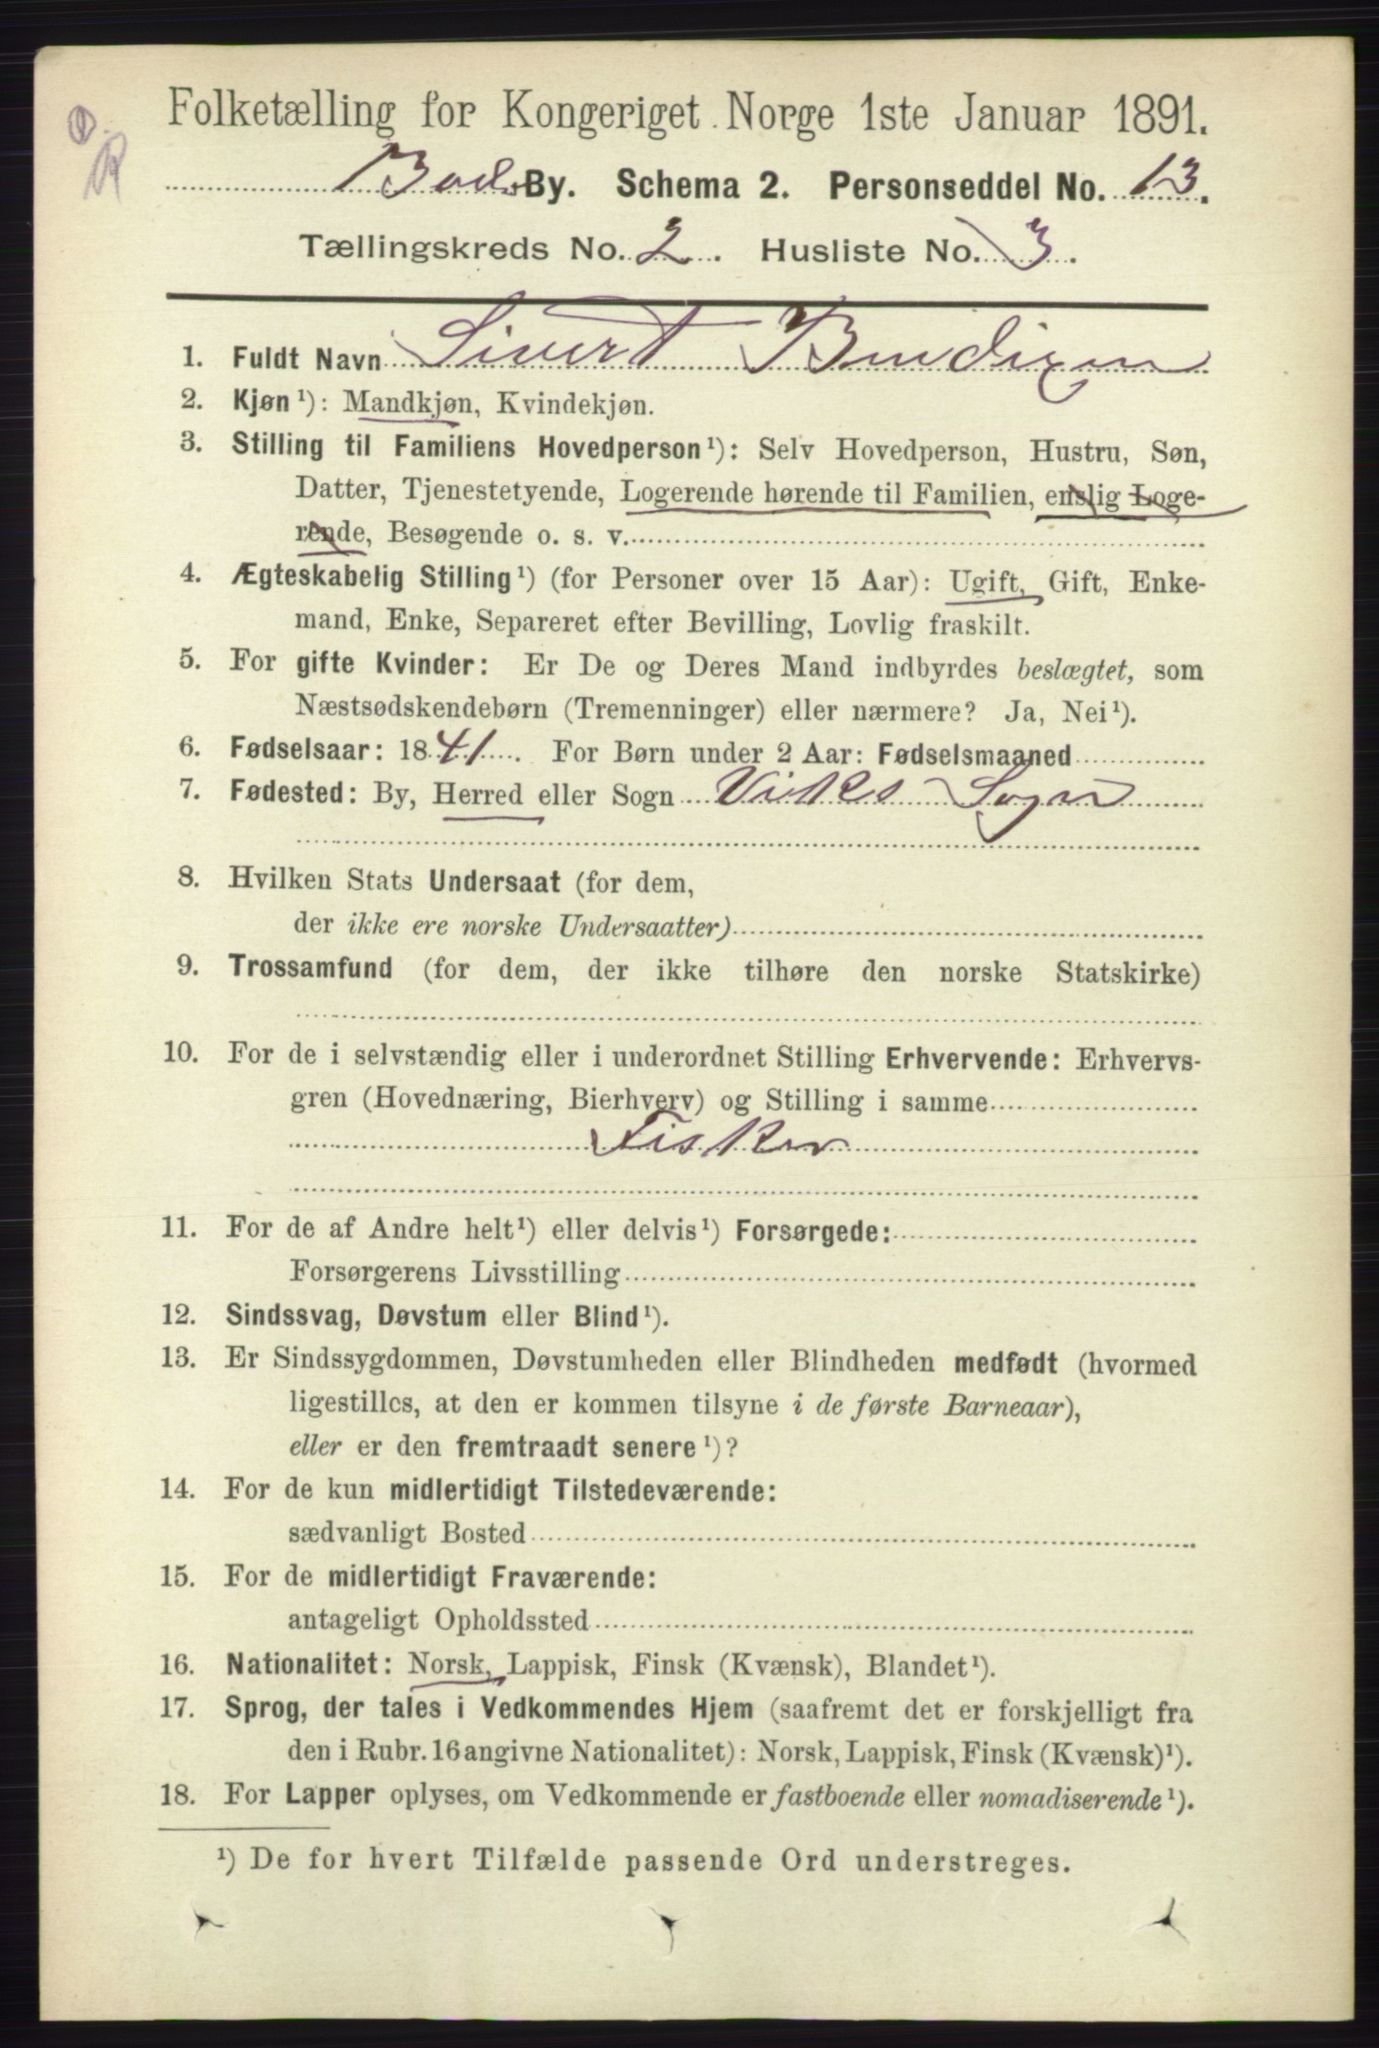 Folketælling for Kongeriget Norge 1ste Januar 1891.
Bodø By. Schema 2. Personseddel No. 13.
Tællingskreds No. 2. Husliste No. 3.
1. Fuldt Navn Sivert Bendixen
2. Kjøn¹): Mandkjøn, Kvindekjøn.
3. Stilling til Familiens Hovedperson¹): Selv Hovedperson, Hustru, Søn,
Datter, Tjenestetyende, Logerende hørende til Familien, enslig Loge-
rende, Besøgende o. s. v.
4. Ægteskabelig Stilling¹) (for Personer over 15 Aar): Ugift, Gift, Enke-
mand, Enke, Separeret efter Bevilling, Lovlig fraskilt.
5. For gifte Kvinder: Er De og Deres Mand indbyrdes beslægtet, som
Næstsødskendebørn (Tremenninger) eller nærmere? Ja, Nei¹).
6. Fødselsaar: 1841. For Børn under 2 Aar: Fødselsmaaned
7. Fødested: By, Herred eller Sogn Viks Sogn
8. Hvilken Stats Undersaat (for dem,
der ikke ere norske Undersaatter)
9. Trossamfund (for dem, der ikke tilhøre den norske Statskirke)
10. For de i selvstændig eller i underordnet Stilling Erhvervende: Erhvervs-
gren (Hovednæring, Bierhverv) og Stilling i samme
Fisker
11. For de af Andre helt¹) eller delvis¹) Forsørgede:
Forsørgerens Livsstilling
12. Sindssvag, Døvstum eller Blind¹).
13. Er Sindssygdommen, Døvstumheden eller Blindheden medfødt (hvormed
ligestilles, at den er kommen tilsyne i de første Barneaar),
eller er den fremtraadt senere¹)?
14. For de kun midlertidigt Tilstedeværende:
sædvanligt Bosted
15. For de midlertidigt Fraværende:
antageligt Opholdssted
16. Nationalitet: Norsk, Lappisk, Finsk (Kvænsk), Blandet¹).
17. Sprog, der tales i Vedkommendes Hjem (saafremt det er forskjelligt fra
den i Rubr. 16 angivne Nationalitet): Norsk, Lappisk, Finsk (Kvænsk)¹).
18. For Lapper oplyses, om Vedkommende er fastboende eller nomadiserende¹).
¹) De for hvert Tilfælde passende Ord understreges.